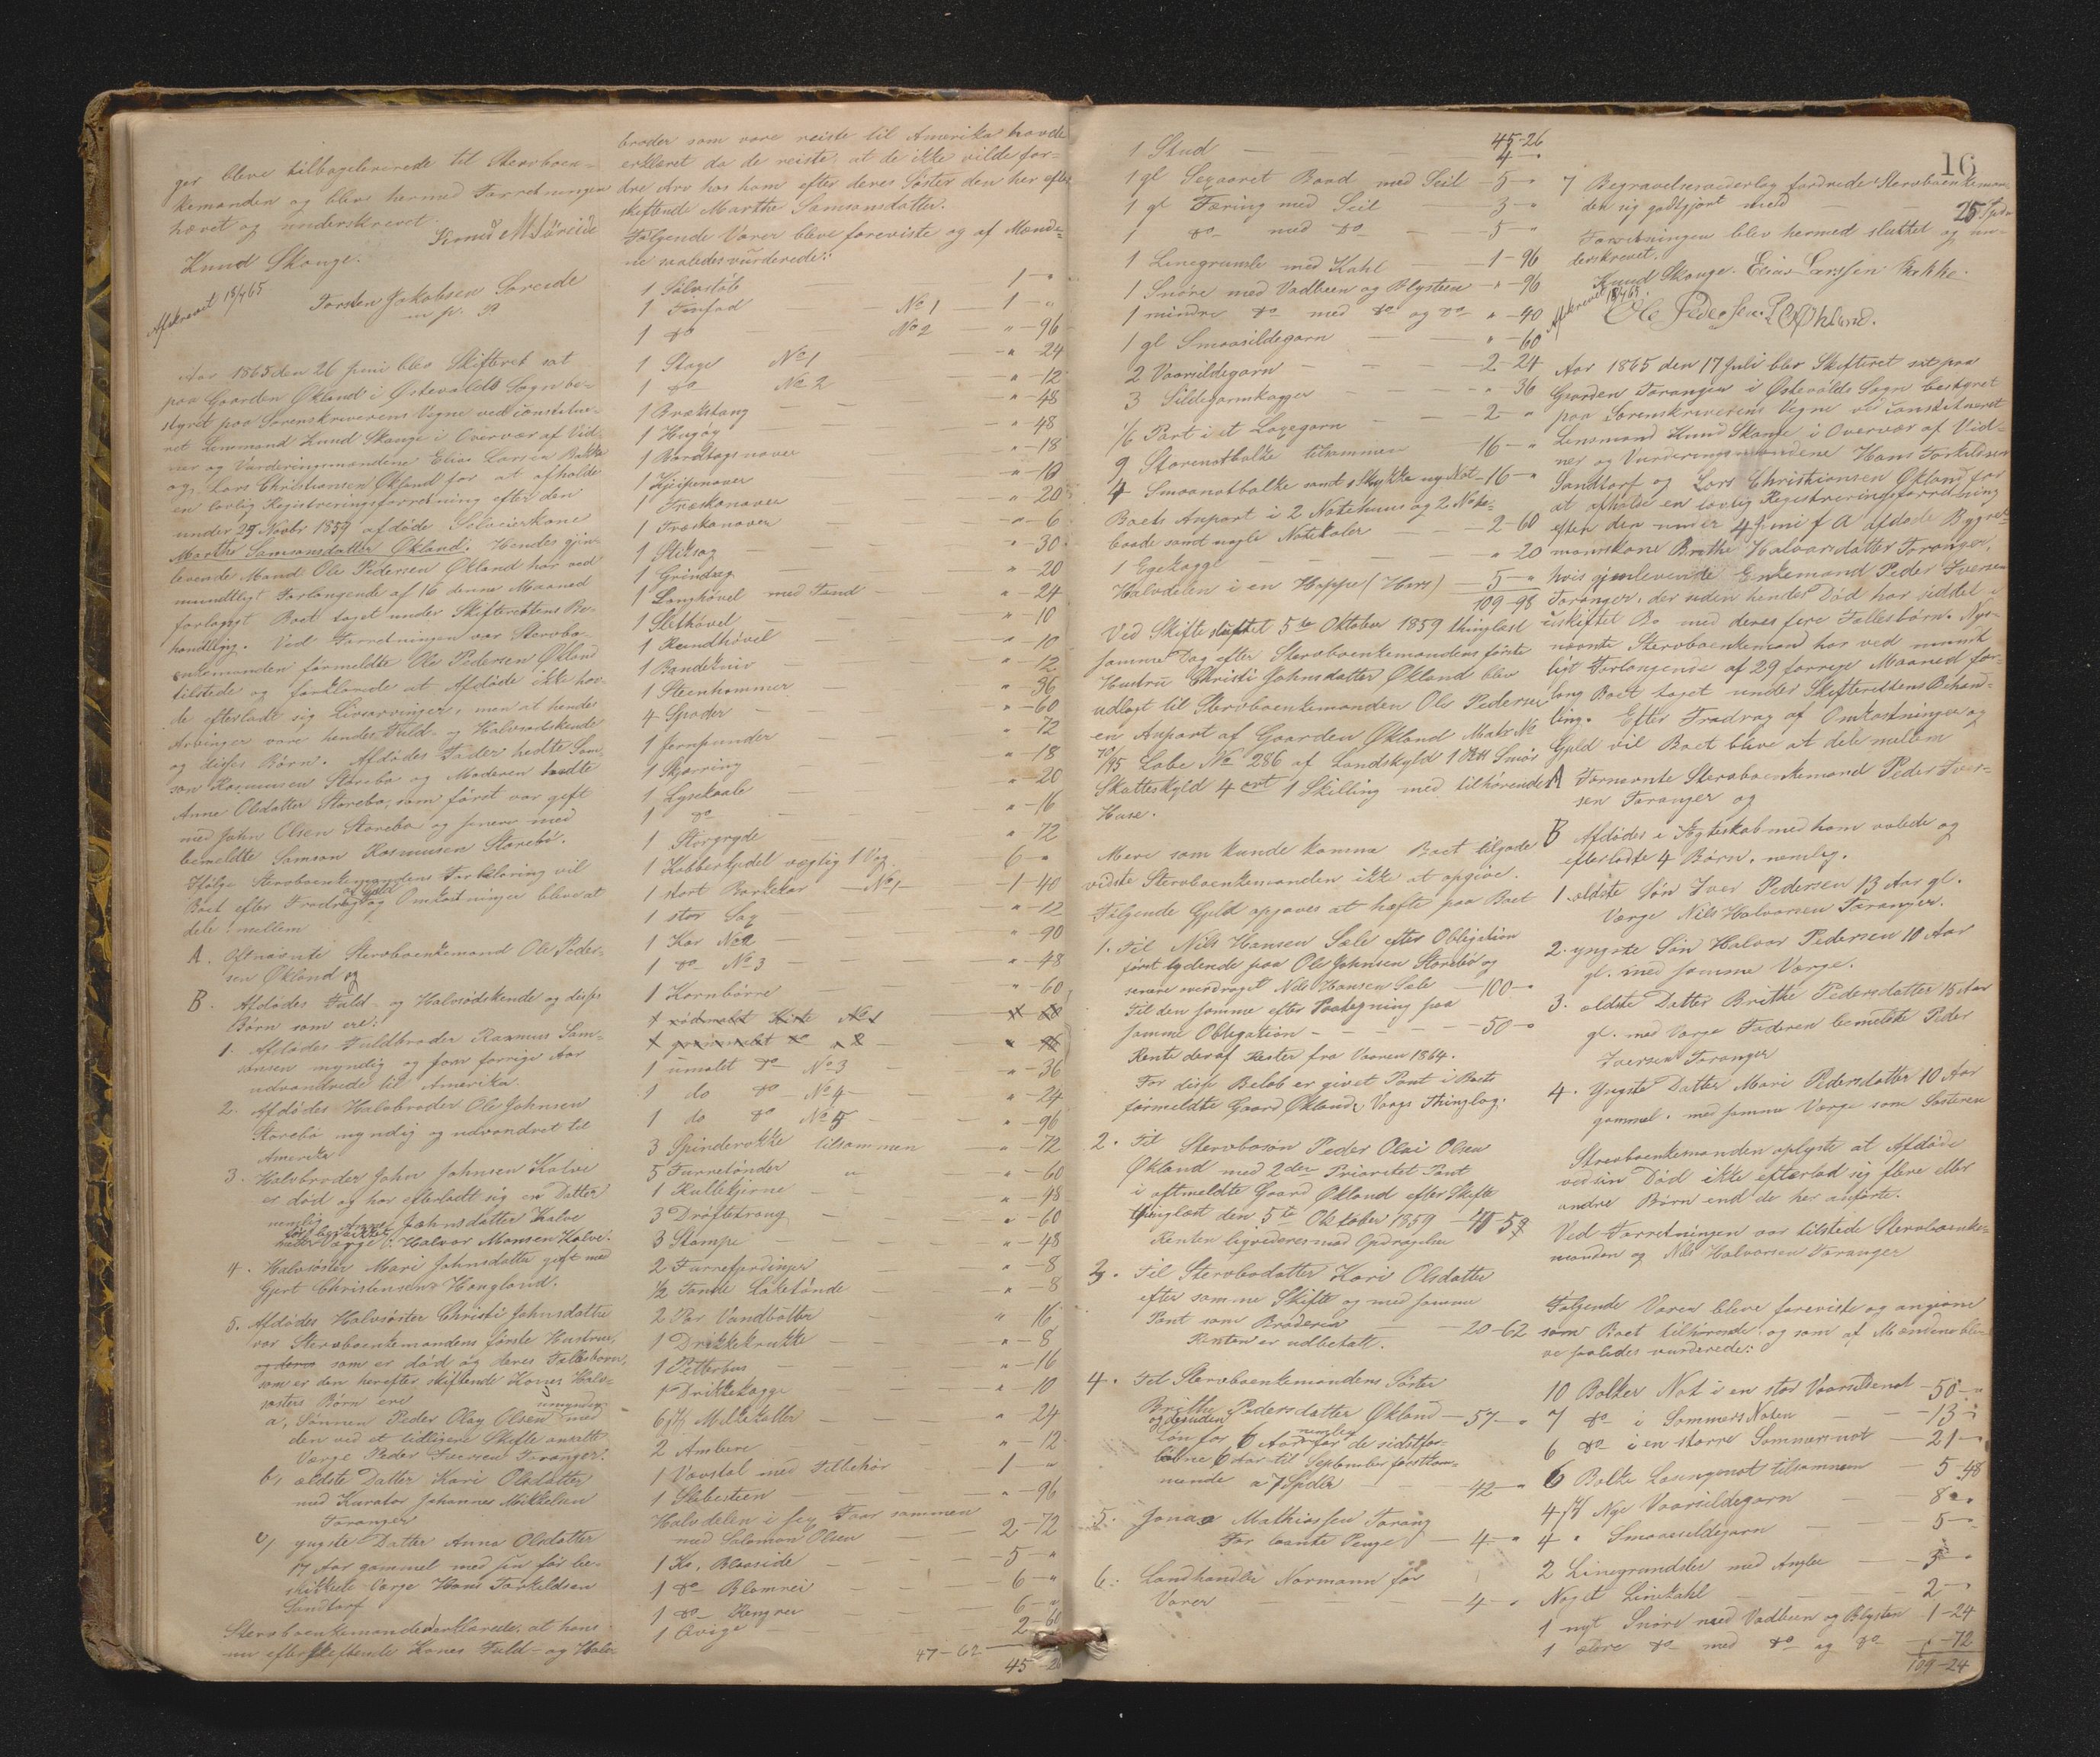 ger bleve tilbageleverede til Stervboen-
kemanden og blev hermed Forretningen
hævet og underskrevet.
Knud Skauge.
Torsten Jakobsen Soreide
m. p. P
Afskrevet 18/7 65
Aar 1865 den 26 Juni blev Skifteret sat
paa Gaarden Økland i Østevolds Sogn be-
styret paa Sorenskriverens Vegne ved constitue-
ret Lensmand Knud Skauge i Overvær af Vid-
ner og Vurderingsmændene Elias Larsen Bakke
og Lars Christiansen Økland for at afholde
en lovlig Registreringsforretning efter den
under 25 Novbr 1859 afdøde Selveierkone
Marthe Samsonsdatter Økland. Hendes gjen-
levende Mand Ole Pedersen Økland har ved
mundtligt Forlangende af 16 denne Maaned
forlangt Boet taget under Skifterettens Be-
handling. Ved Forretningen var Stervbo-
enkemanden formeldte Ole Pedersen Økland
tilstede og forklarede at Afdøde ikke hav-
de efterladt sig Livsarvinger, men at hendes
Arvinger vare hendes Fuld- og Halvsødskende
og disses Børn. Afdødes Fader hedte Sam-
son Rasmusen Storebø og Moderen hedte
Anne Olsdatter Storebø, som først var gift
med John Olsen Storebø og senere med
bemeldte Samson Rasmusen Storebø.
Ifølge Stervboenkemandens Forklaring vil
Boet efter Fradrag af Gjæld og Omkostninger blive at
dele mellem
A. Oftnævnte Stervboenkemand Ole Peder-
sen Økland og
B. Afdødes Fuld- og Halvsødskende og disses
Børn som ere:
1. Afdødes Fuldbroder Rasmus Sam-
sonsen myndig og som forrige Aar
udvandrede til Amerika.
2. Afdødes Halvbroder Ole Johnsen
Storebø myndig og udvandret til
Amerika
3. Halvbroder John Johnsen Kalve
er død og har efterladt sig en Datter
nemlig Anne Johnsdatter Kalve
Værge: Halvor Monsen Kalve.
4. Halvsøster Mari Johnsdatter gift med
Gjert Christensen Haugland.
5. Afdødes Halvsøster Christi Johnsdatter
var Stervboenkemandens første Hustrue,
som er død og deres Fællesbørn,
som er den herefter skiftende Kones Halv-
søsters Børn ere
a, Sønnen Peder Olay Olsen umyndig med
den ved et tidligere Skifte ansatte
Værge Peder Iversen Toranger.
b, ældste Datter Kari Olsdatter
med Kurator Johannes Mikkelsen
Toranger
c, yngste Datter Anna Olsdatter
17 Aar gammel med sin før be-
skikkede Værge Hans Torkildsen
Sandtorf
Stervboenkemanden erklærede, at hans
nu efterskiftende Kones Fuld- og Halv-
broder som vare reiste til Amerika havde
erklæret da de reiste, at de ikke vilde for-
dre Arv hos ham efter deres Søster den her efter-
skiftende Marthe Samsonsdatter.
Følgende Varer bleve foreviste og af Mænde-
ne saaledes vurderede:
1 Sølvstøb — 1 - "
1 Tinfad No 1 — 1 - "
1 do No 2 — " - 96
1 Stage No 1 — " - 24
1 do No 2 — " - 12
1 Brækstang — " - 48
1 Hugøx — " - 48
1 Bordtagsnaver — " - 18
1 Kjeipenaver — " - 10
1 Træskonaver — " - 20
1 Træskonaver — " - 6
1 Stiksag — " - 30
1 Grindsag — " - 20
1 Langhøvel med Tand — " - 24
1 Sletthøvel — " - 10
1 Rundhøvel — " - 10
1 Bandekniv — " - 12
1 Steenhammer — " - 36
4 Spader — " - 60
1 Jernpunder — " - 72
1 Skjæring — " - 18
1 Lysekaale — " - 20
1 do — " - 16
1 Storgryde — " 72
1 Kobberkjedel vægtig 1 Vog. — 6 - "
1 stort Barkekar — No 1 — 1 - 40
1 stor Sag — " - 12
1 Kar No 2 — " - 90
1 do No 3 — " - 48
1 Kornbørre — " - 60
1 rødmalet Kiste No 1
1 umalet do No 3 — " - 36
1 do do No 4 — " - 24
1 do do No 5 — " - 96
3 Spinderokke tilsammen — " - 72
5 Furretønder — " - 60
1 Kullekjerne — " - 48
3 Drøftetraug — " - 60
3 Stampe — " - 48
2 Furrefjerdinger — " - 8
1/2 Tønde Laketønde — " - 8
2 Par Vandbøtter — " 16
1 Drikkekrukke — " - 8
1 Pelterbus — " - 16
1 Drikkekagge — " 10
6 Melkekoller — " 24
2 Ambere — " - 12
1 Vævstol med Tilbehør — 1 - "
1 Slibesteen — " - 96
Halvdelen i sex Faar sammen
med Salomon Olsen — 2 - 72
1 Ko, Blaaside — 5 - "
1 do Blomrei — 6 - "
1 do Rengrei — 6 - "
1 Qvige — 2 - 60
47-62
45-26
45-26
1 Stud — 4 - "
1 gl Sexaaret Baad med Seil — 5 - "
1 gl Færing med Seil — 3 - "
1 do med do — 5 - "
1 Linegrumle med Kahl — 1 - 96
1 Snøre med Vadbeen og Blysteen — " - 96
1 mindre do med do og do — " - 40
1 gl Smaasildegarn — " - 60
2 Vaarsildegarn — 2 - 24
3 Sildegarnskagger — " - 36
1/6 Part i et Laxegarn — 2 - "
9 Storenotbolke tilsammen — 16 - "
4 Smaanotbolke samt 1 Stykke ny Not — 16 - "
Boets Anpart i 2 Notehuus og 2 Note-
baade samt nogle Notekaler — 2 - 60
1 Egekagge — " 20
Halvdelen i en Hoppe (Hors) — 5 - "
109-98
Ved Skifte sluttet 5te Oktober 1859 thinglæst
samme Dag efter Stervboenkemandens første
Hustru Christi Johnsdatter Økland blev
udlagt til Stervboenkemanden Ole Pedersen
en Anpart af Gaarden Økland Matr. No
70/95 Løbe No 286 af Landskyld 1 Smør
Skatteskyld 4 ort 1 Skilling med tilhørende
Huse.
Mere som kunde komme Boet tilgode
vidste Stervboenkemanden ikke at opgive.
Følgende Gjæld opgaves at hæfte paa Boet
1. Til Nils Hansen Sæle efter Obligation
først lydende paa Ole Johnsen Storebø og
senere overdraget Nils Hansen Sæle — 100 - "
Til den samme efter Paategning paa
samme Obligation — 50 - "
Rente deraf rester fra Vaaren 1864.
For disse Beløb er givet Pant i Boets
formeldte Gaard Økland, Vaags Thinglag.
2. Til Stervbosøn Peder Olai Olsen
Økland med 2den Prioritet Pant
i oftmeldte Gaard Økland efter Skifte
thinglæst den 5te Oktober 1859
Renten liqvideres mod Opdragelse
3. Til Stervbodatter Kari Olsdatter
efter samme Skifte og med samme
Pant som Broderen — 20-62
Renten er udbetalt.
4. Til Stervboenkemandens Søster
Brithe Pedersdatter Økland — 57 - "
og desuden
Løn for 6 Aar nemlig for de sidstfor-
løbne 6 Aar til September førstkom-
mende a 7 Spdlr — 42 - "
5. Jonas Mathiassen Torang
For laante Penge — 4 - "
6. Landhandler Normann for
Varer — 4 - "
16
7 Begravelsesvederlag fordrede Stervboenkeman-
den sig godtgjort med — 25 Spdr
Forretningen blev hermed sluttet og un-
derskrevet.
Knud Skauge. Elias Larssen Bakke.
Afskrevet 18/7 65.
Ole Pedersen. L C Økland.
Aar 1865 den 17 Juli blev Skifteret sat paa
Gaarden Toranger i Østevolds Sogn bestyret
paa Sorenskriverens Vegne ved constitueret
Lensmand Knud Skauge i Overvær af Vid-
ner og Vurderingsmændene Hans Torkildsen
Sandtorf og Lars Christiansen Økland for
at afholde en lovlig Registreringsforretning
efter den under 4 Juni f A afdøde Bygsel-
mandskone Brithe Halvorsdatter Toranger,
hvis gjenlevende Enkemand Peder Iversen
Toranger, der siden hendes Død har siddet i
uskiftet Bo med deres fire Fællesbørn. Nys-
nævnte Stervboenkemand har ved mundt
ligt Forlangende af 29 forrige Maaned for-
langt Boet taget under Skifterettens Behand-
ling. Efter Fradrag af Omkostninger og
Gjæld vil Boet blive at dele mellem
A Fornævnte Stervboenkemand Peder Iver-
sen Toranger og
B Afdødes i Ægteskab med ham avlede og
efterladte 4 Børn, nemlig.
1 ældste Søn Iver Pedersen 13 Aar gl.
Værge Nils Halvorsen Toranger.
2. yngste Søn Halvor Pedersen 10 Aar
gl. med samme Værge.
3. ældste Datter Brithe Pedersdatter 15 Aar
gl. med Værge Faderen bemeldte Peder
Iversen Toranger
4. Yngste Datter Mari Pedersdatter 10 Aar
gammel, med samme Værge som Søsteren
Stervboenkemanden oplyste at Afdøde
ved sin Død ikke efterlod sig flere eller
andre Børn end de her anførte.
Ved Forretningen var tilstede Stervboenke-
manden og Nils Halvorsen Toranger
Følgende Varer bleve foreviste og angivne
som Boet tilhørende og som af Mændene ble-
ve saaledes vurderede:
10 Bolker Not i en stor Vaarsildenot — 50 - "
7 do i Sommers Noten — 13 - "
6 do i en større Sommernot — 21 - "
6 Bolke Losungenot tilsammen — 5 - 48
4 Nye Vaarsildegarn — 8 - "
4 " Smaasildegarn — 5 - "
2 Linegrundsler med Angler — 3 - "
Noget Linekahl — 2 - "
1 nyt Snøre med Vadbeen og Blysten — 1 - 24
1 ældre do med do og do — " - 72
109-24